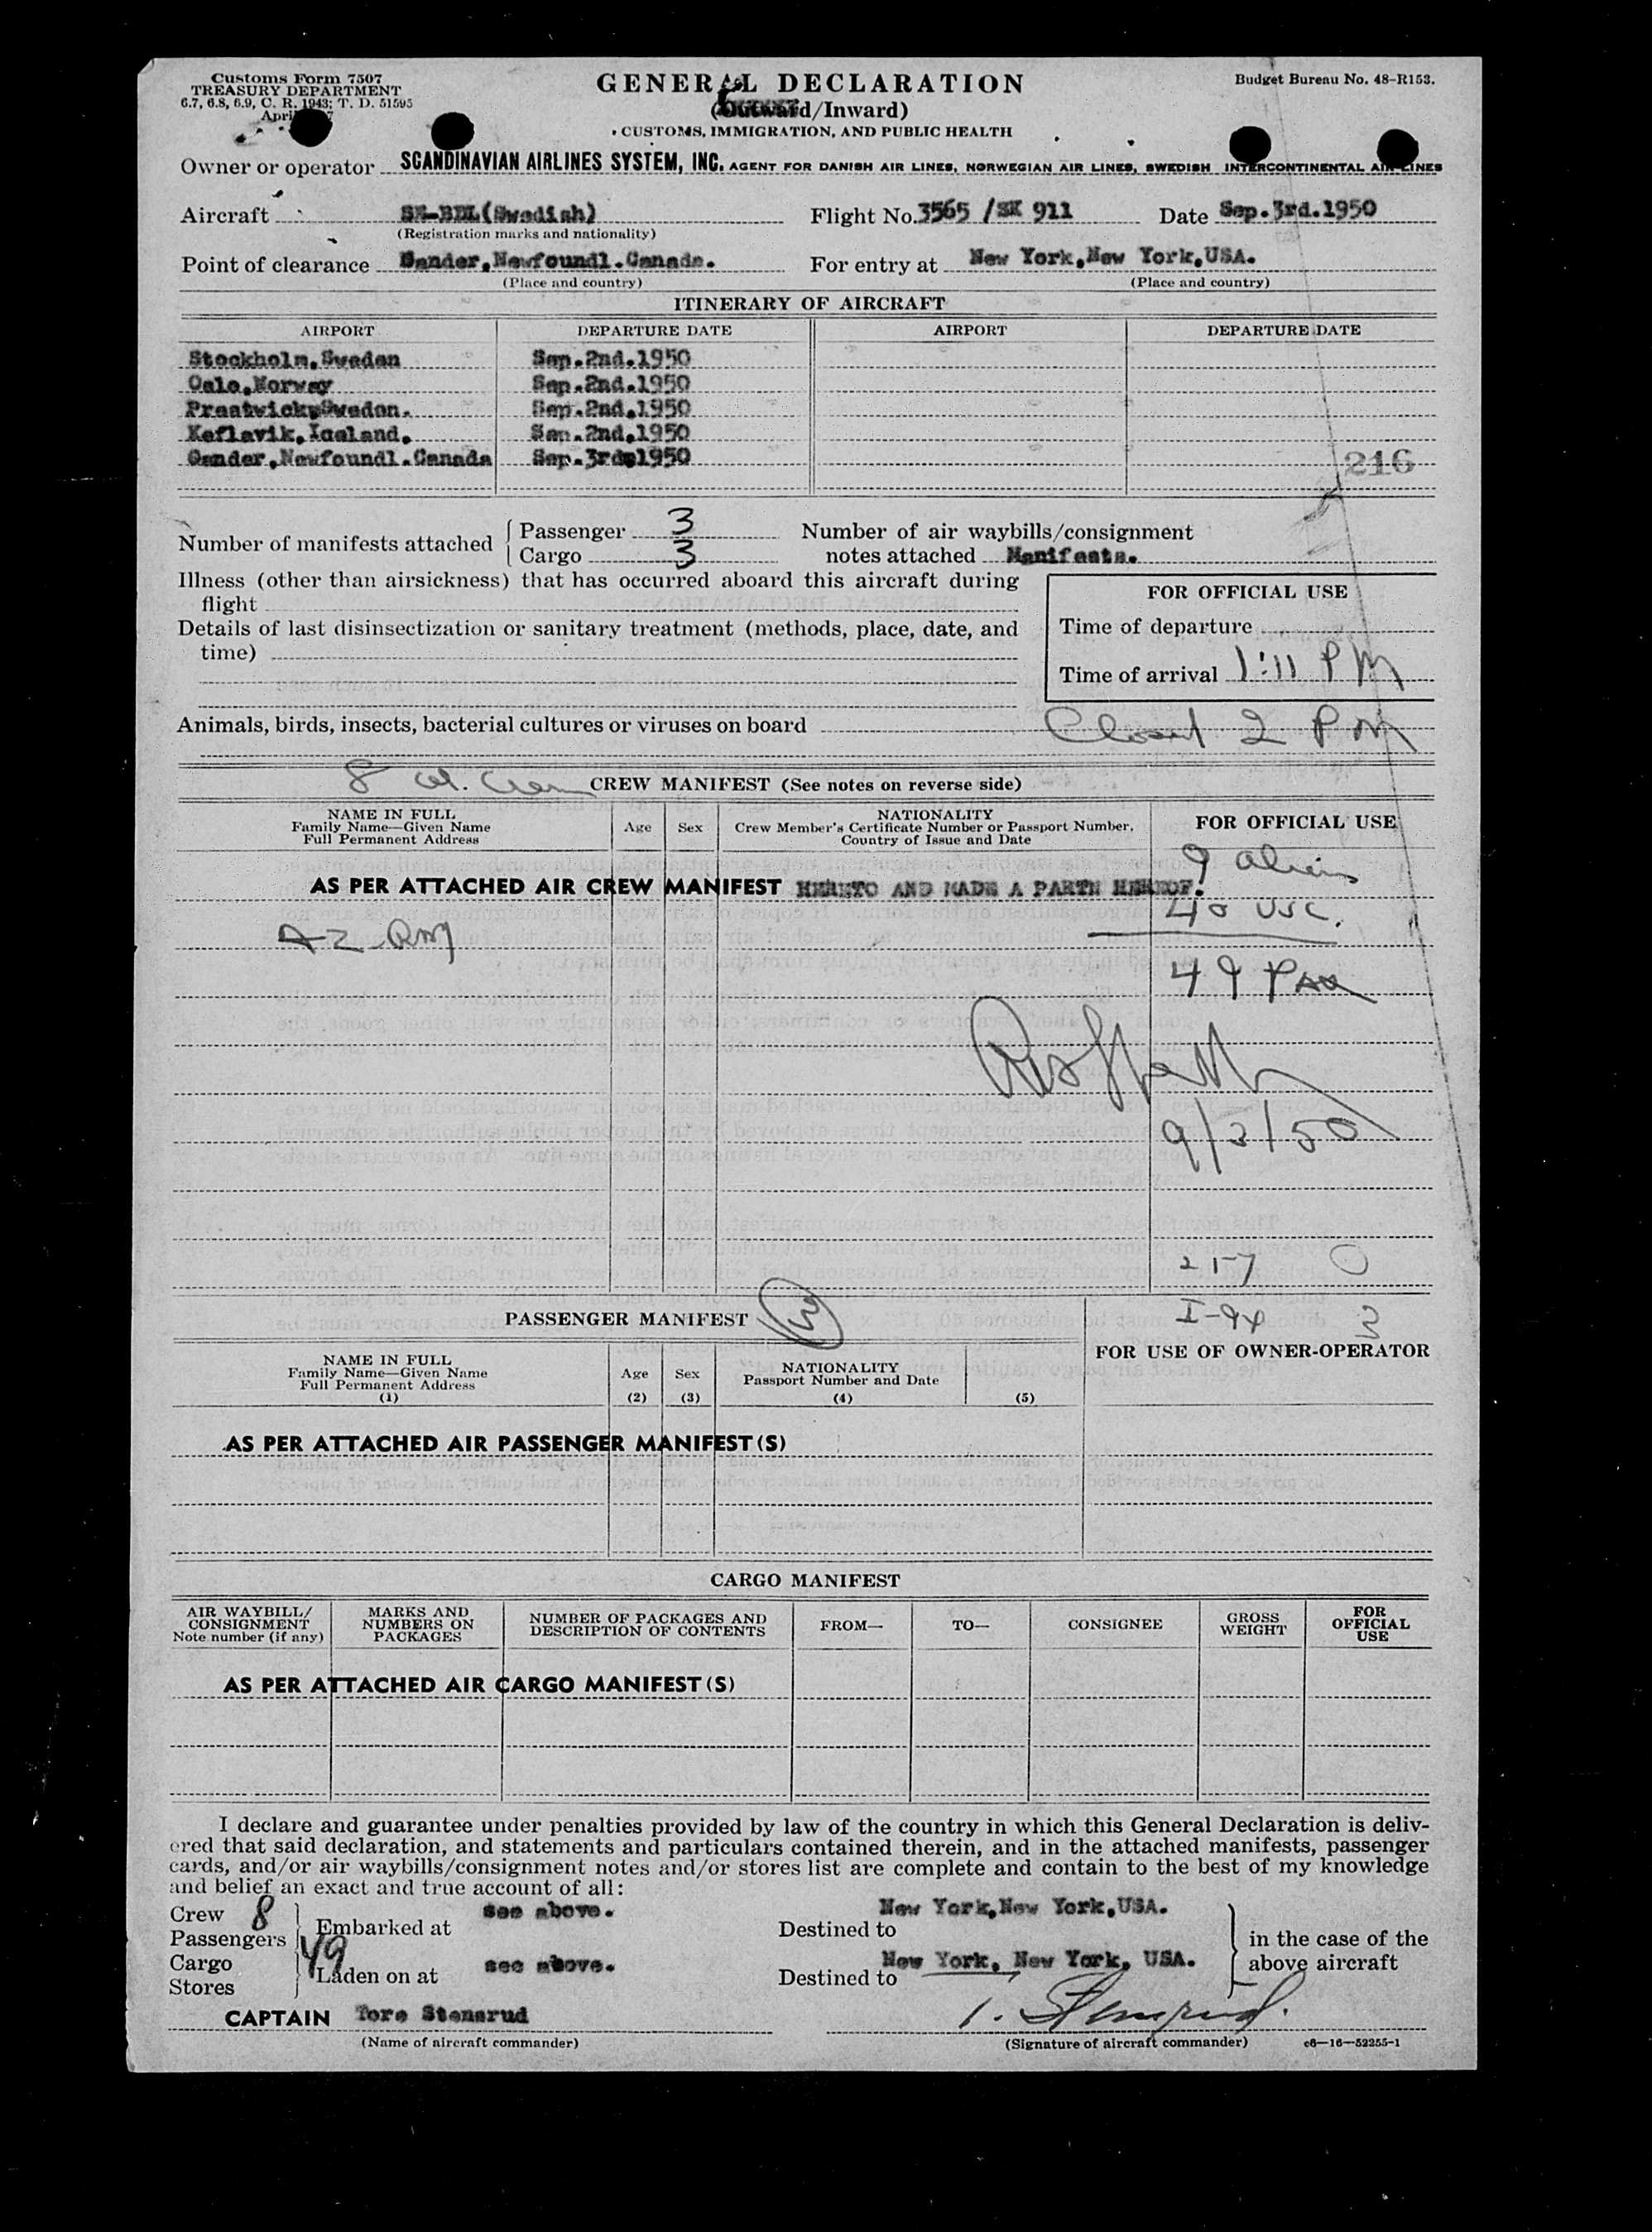 Customs Form 7507
TREASURY DEPARTMENT
6.7, 6.8, 6.9, C. R. 1943; T. D. 51595
April
GENERAL DECLARATION
(Outward/Inward)
CUSTOMS, IMMIGRATION, AND PUBLIC HEALTH
Budget Bureau No. 48-R153.
Owner or operator SCANDINAVIAN AIRLINES SYSTEM, INC. AGENT FOR DANISH AIR LINES, NORWEGIAN AIR LINES, SWEDISH INTERCONTINENTAL AIR LINES
Aircraft SE-BDL(Swedish) Flight No. 3565 /SK 911 Date Sep.3rd.1950
(Registration marks and nationality)
Point of clearance Gander,Newfoundl.Canada. For entry at New York,New York,USA.
(Place and country) (Place and country)
ITINERARY OF AIRCRAFT
AIRPORT DEPARTURE DATE AIRPORT DEPARTURE DATE
Stockholm,Sweden Sep.2nd.1950
Oslo,Norway Sep.2nd.1950
Prestwick,Sweden. Sep.2nd,1950
Keflavik,Iceland, Sep.2nd,1950
Gander,Newfoundl.Canada Sep.3rd,1950
216
Number of manifests attached Passenger 3 Number of air waybills/consignment
Cargo 3 notes attached Manifests.
Illness (other than airsickness) that has occurred aboard this aircraft during
flight
Details of last disinsectization or sanitary treatment (methods, place, date, and
time)
FOR OFFICIAL USE
Time of departure
Time of arrival 1:11 PM
Animals, birds, insects, bacterial cultures or viruses on board
Closed 2 PM
8 al. Crew CREW MANIFEST (See notes on reverse side)
NAME IN FULL
Family Name—Given Name
Full Permanent Address
Age Sex
NATIONALITY
Crew Member's Certificate Number or Passport Number,
Country of Issue and Date
FOR OFFICIAL USE
9 aliens
AS PER ATTACHED AIR CREW MANIFEST HERETO AND MADE A PARTN HEREOF.
40 USC.
49 Pax
9/3/50
21-7 0
I-94 3
PASSENGER MANIFEST 3
FOR USE OF OWNER-OPERATOR
NAME IN FULL
Family Name—Given Name
Full Permanent Address
(1)
Age
(2)
Sex
(3)
NATIONALITY
Passport Number and Date
(4)
(5)
AS PER ATTACHED AIR PASSENGER MANIFEST(S)
CARGO MANIFEST
AIR WAYBILL/
CONSIGNMENT
Note number (if any)
MARKS AND
NUMBERS ON
PACKAGES
NUMBER OF PACKAGES AND
DESCRIPTION OF CONTENTS
FROM—
TO—
CONSIGNEE
GROSS
WEIGHT
FOR
OFFICIAL
USE
AS PER ATTACHED AIR CARGO MANIFEST(S)
I declare and guarantee under penalties provided by law of the country in which this General Declaration is deliv-
ered that said declaration, and statements and particulars contained therein, and in the attached manifests, passenger
cards, and/or air waybills/consignment notes and/or stores list are complete and contain to the best of my knowledge
and belief an exact and true account of all:
Crew 8 see above. New York,New York,USA.
Passengers 49 Embarked at Destined to in the case of the
Cargo see above. New York, New York, USA. above aircraft
Stores Laden on at Destined to
CAPTAIN Tore Stensrud T. Stensrud.
(Name of aircraft commander) (Signature of aircraft commander) c6—16—52255-1